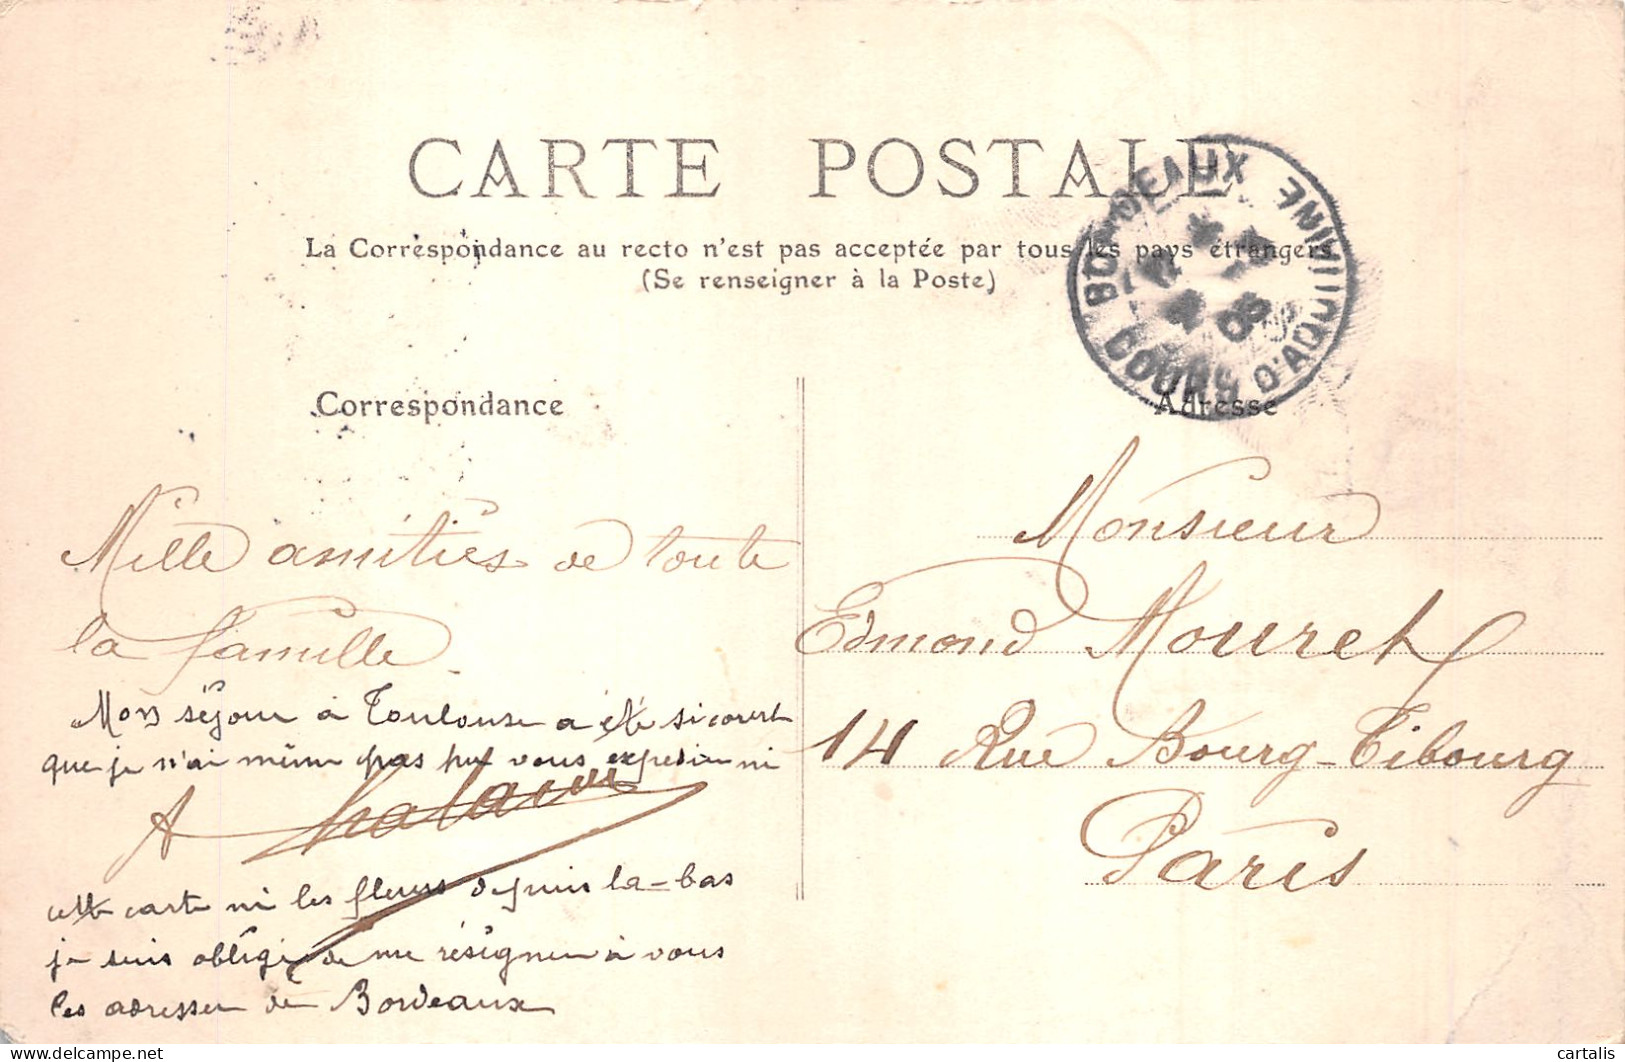 CARTE POSTALE
La Correspondance au recto n'est pas acceptée par tous les pays étrangers
(Se renseigner à la Poste)
BORDEAUX
COURS D'AQUITAINE
08
Correspondance
Mille amitiés de toute
la famille
Mon séjour à Toulouse a été si court
que je n'ai même pas pu vous expedier ni
cette carte ni les fleurs depuis la-bas
je suis obligé de me résigner à vous
les adresser de Bordeaux
Adresse
Monsieur
Edmond Mouret
14 Rue Bourg-Tibourg
Paris
www.delcampe.net
cartalis